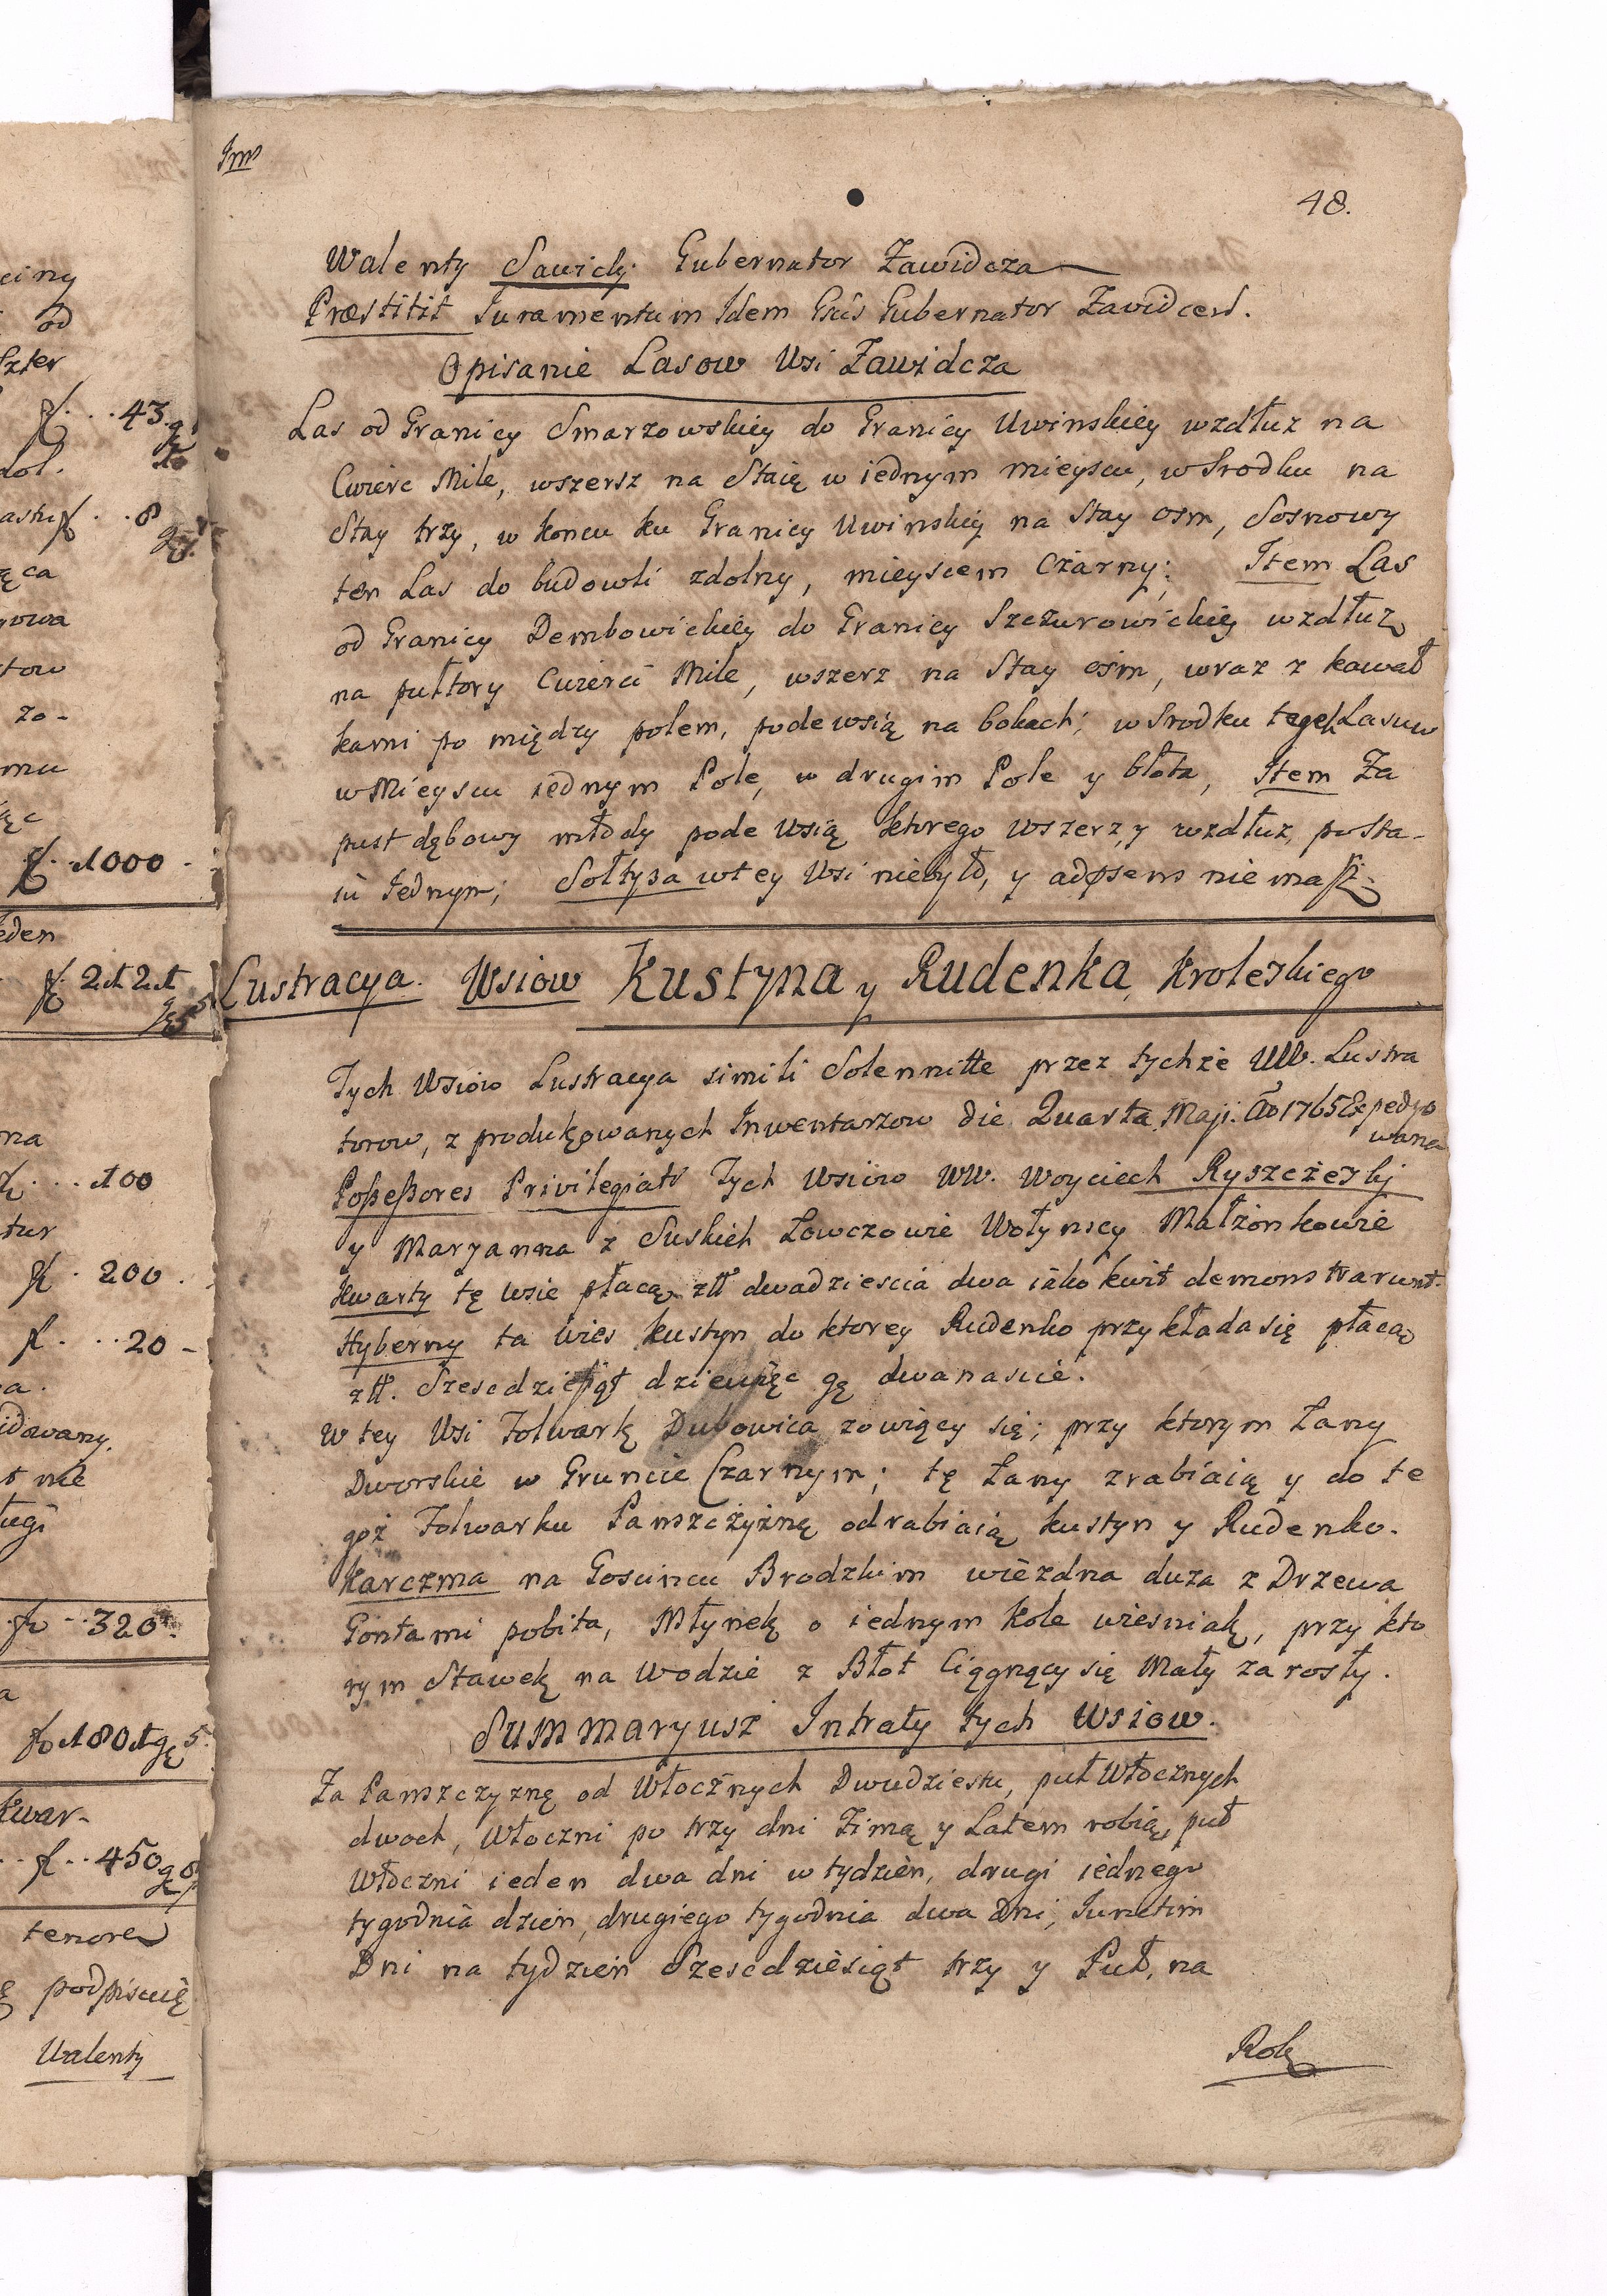 ciny
od
Szter
43 g
dol.
8
ęca
gowa
tow
zo-
mu
1000
eden
2121
na
100
tur
200
20
a.
idowany.
t nie
ługi
320
a
1801 g 5
Kwar-
450 g 8
tenore
podpisuię
Walenty
Jmo
48.
Walenty Sawicky Gubernator Zawidcza
Præstitit Juramentum Idem Gsus Gubernator Zavidcen.
Opisanie Lasow Wsi Zawidcza
Las od Granicy Smarzowskiey do Granicy Uwinskiey wzdłuz na
Cwierc Mile, wszersz na Staię w iednym mieyscu, w Srodku na
Stay trzy, w koncu ku Granicy Uwinskiey na Stay osm, Sosnowy
ten Las do budowli zdolny, mieyscem Czarny; Item Las
od Granicy Dembowickiey do Granicy Szczurowickiey wzdłuz
na pułtory Cwierci Mile, wszerz na Stay ośm, wraz z kawał
kami po między polem, pode wsią na bokach; w Srodku tegoż Lasuw
w Mieyscu iednym Pole, w drugim Pole y błota, Item Za
pust dębowy młody pode Wsią ktorego wszerz, y wzdłuz, po Sta-
iu Iednym; Sołtysa w tey Wsi niebyło, y adpsens nie masz.
Lustracya. Wsiow Kustyna y Rudenka Kroleskiego
Tych Wsiow Lustracya simili Solennitte przez tychże WW. Lustra
torow, z produkowanych Inwentarzow die Quarta Maji. Ao 1765 Expedyo
wana
Poßeßores Privilegiati Tych Wsiow WW. Woyciech Ryszczeski
y Maryanna z Suskich Łowczowie Wołynscy Małżonkowie
Kwarty tę wsie płacą złł dwadziescia dwa iako kwit demonstrarunt.
Hyberny ta Wies Kustyn do ktorey Rudenko przykłada się płacą
złł. Szescdziesiąt dziewięc gę dwanascie.
W tey Wsi Folwark Dubowica zowiący się; przy ktorym Łany
Dworskie w Gruncie Czarnym; tę Łany zrabiaią y do te
goż Folwarku Panszczyżnę odrabiaią Kustyn y Rudenko.
Karczma na Goscincu Brodzkim wiezdna duza z Drzewa
Gontami pobita, Młynek o iednym Kole wiesniak, przy kto
rym Stawek na Wodzie z Błot Ciągnący się Mały zarosły.
Summaryusz Intraty tych Wsiow.
Za Panszczyznę od Włocznych Dwudziestu, puł Włocznych
dwoch, Włoczni po trzy dni Zimą y Latem robią, puł
Włoczni ieden dwa dni w tydzien, drugi iednego
tygodnia dzien, drugiego tygodnia dwa Dni, Iunctim
Dni na tydzien Szescdziesiąt trzy y Puł, na
Rok